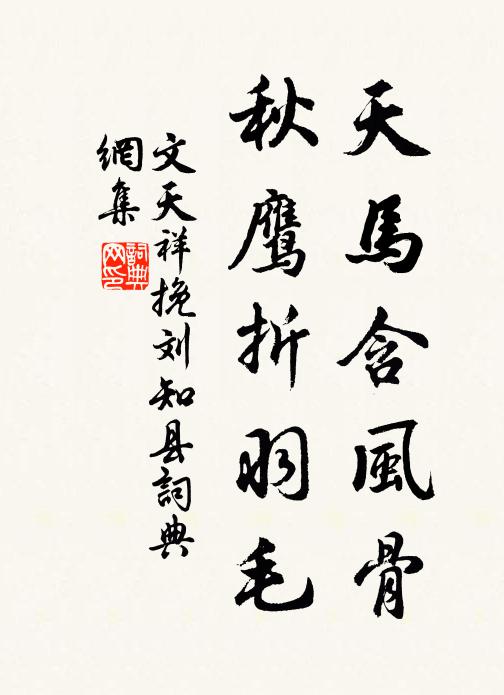 天馬含風骨
秋鹰折羽毛
文天祥挽刘知县詞典
網集
詞典网印